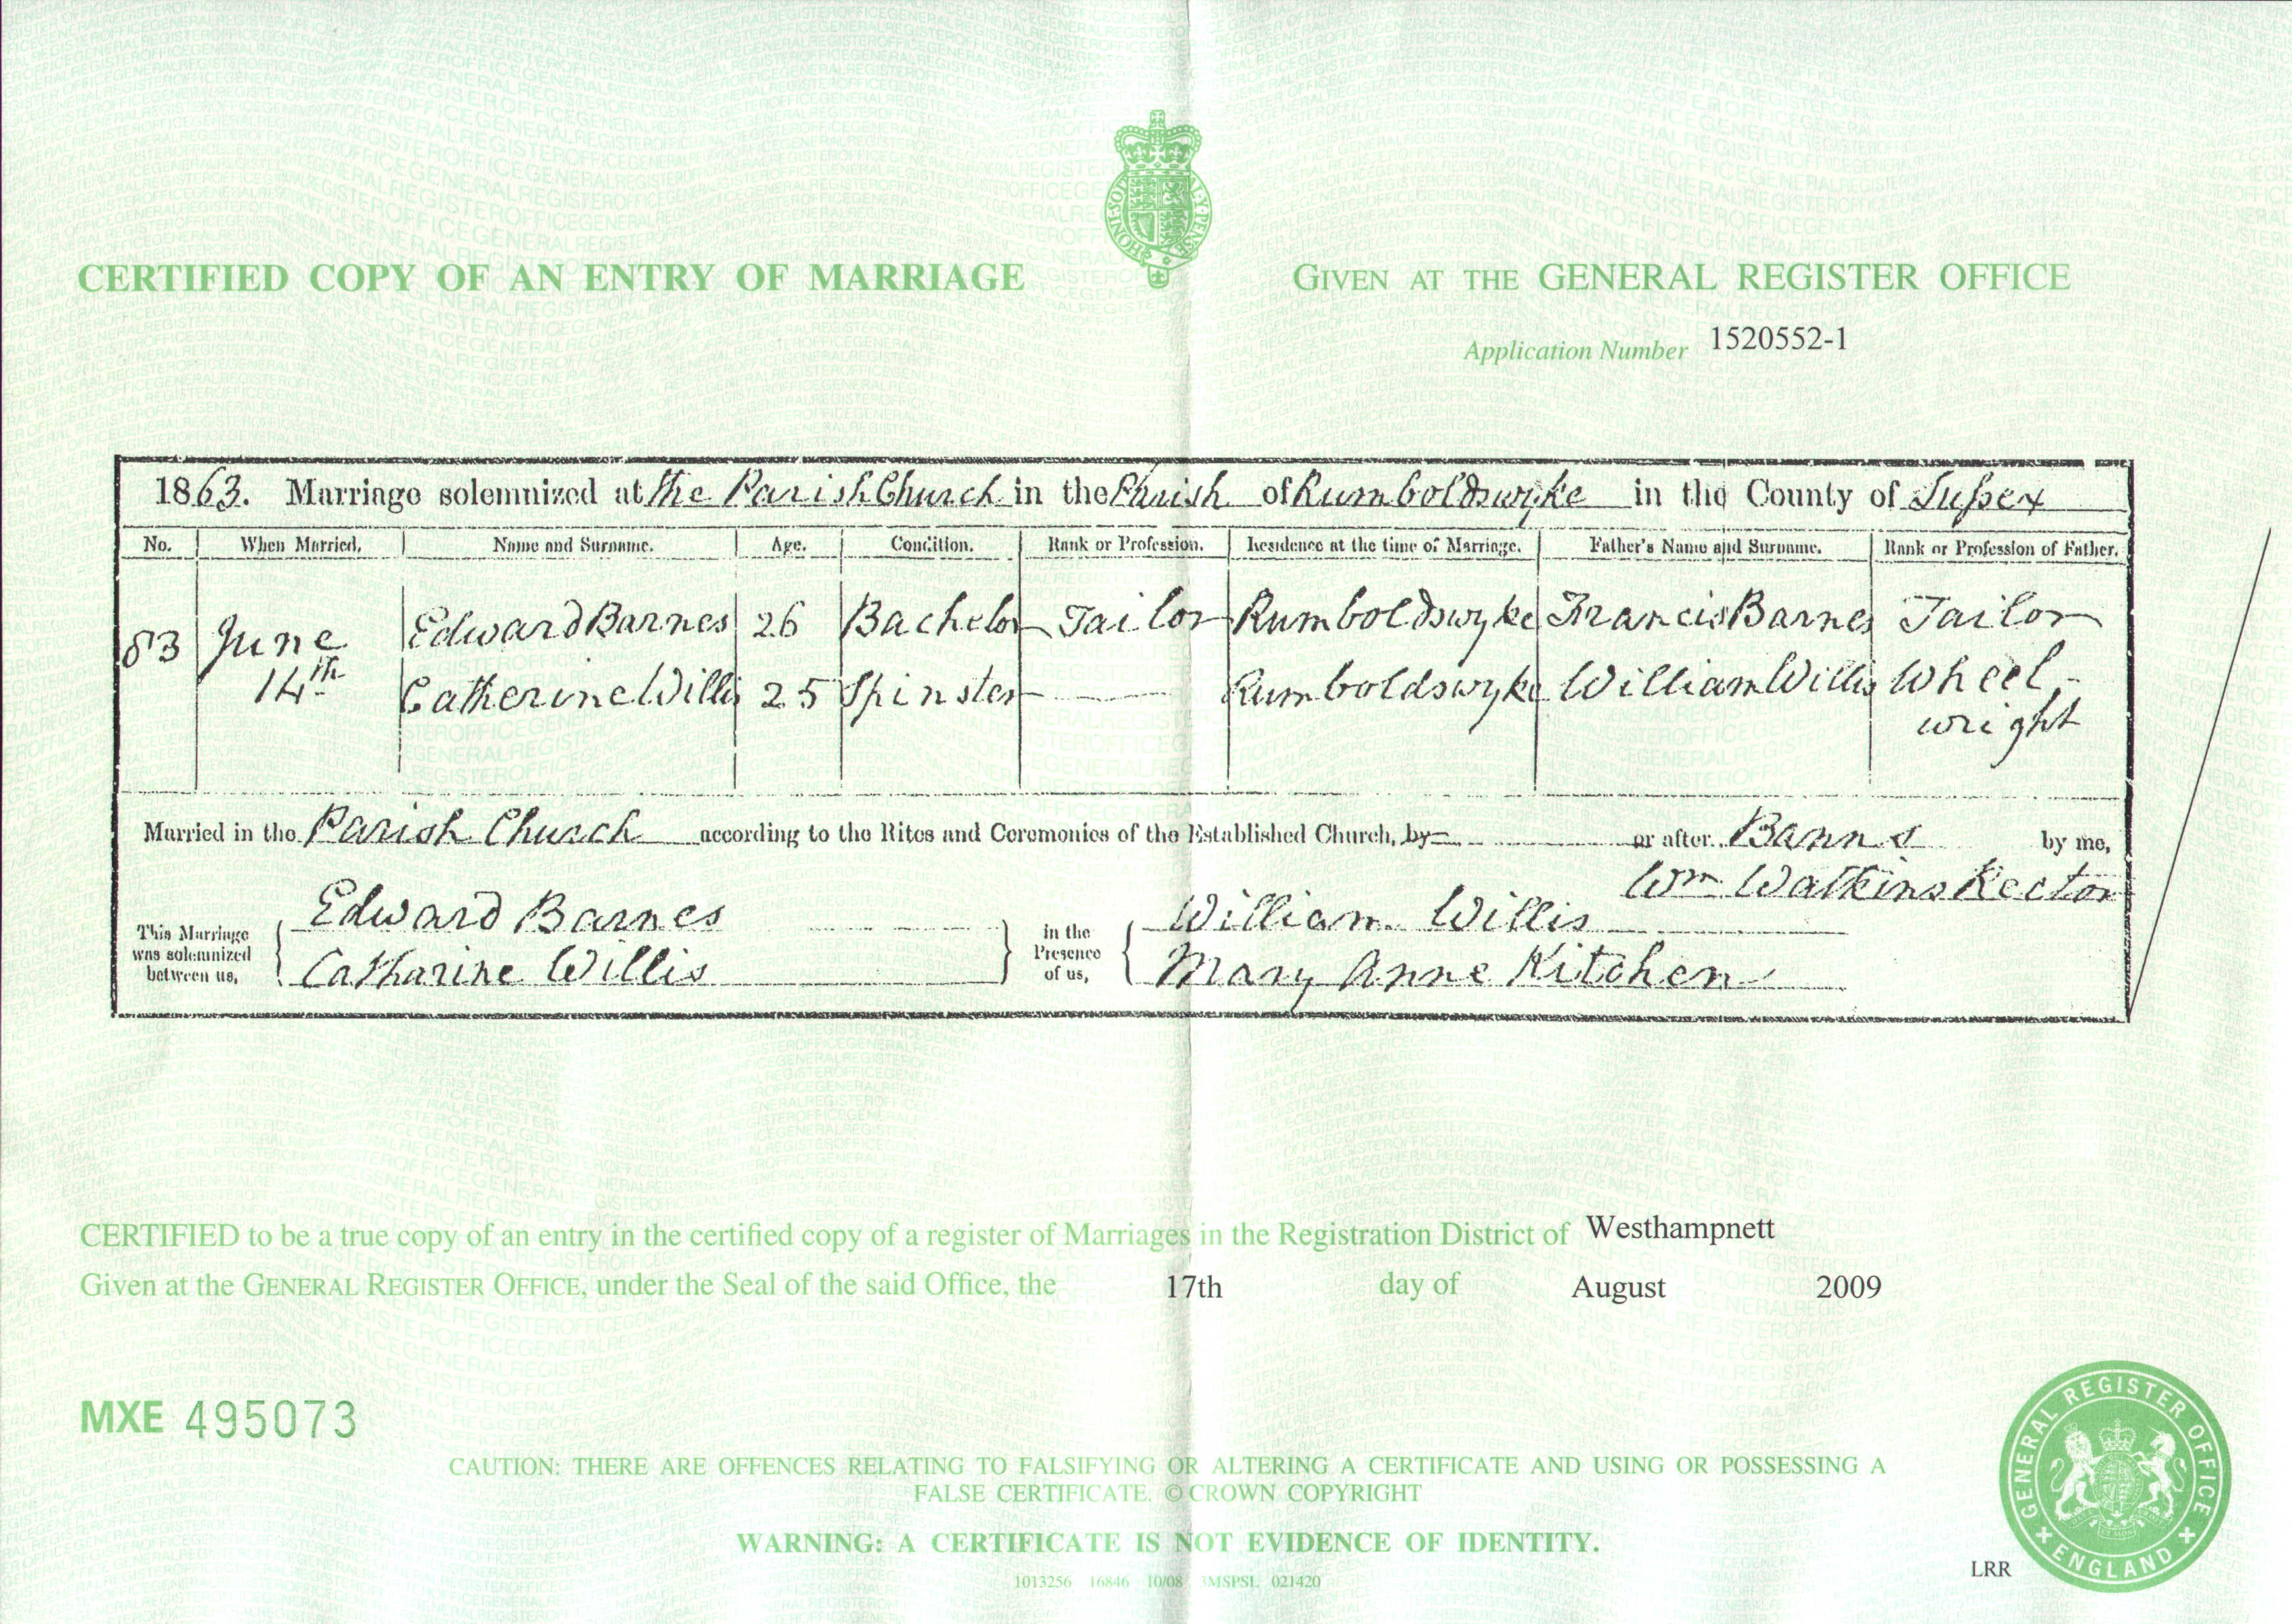 CERTIFIED COPY OF AN ENTRY OF MARRIAGE
GIVEN AT THE GENERAL REGISTER OFFICE
Application Number 1520552-1
1863. Marriage solemnized at the Parish Church in the Parish of Rumboldswyke in the County of Sussex
No. When Married. Name and Surname. Age. Condition. Rank or Profession. Residence at the time of Marriage. Father's Name and Surname. Rank or Profession of Father.
83 June Edward Barnes 26 Bachelor Tailor Rumboldswyke Francis Barnes Tailor
14th Catherine Willis 25 Spinster — Rumboldswyke William Willis Wheel-
wright
Married in the Parish Church according to the Rites and Ceremonies of the Established Church, by — or after Banns by me,
Wm Watkins Rector
This Marriage was solemnized between us, Edward Barnes in the Presence of us, William Willis
Catharine Willis Mary Anne Kitchen
CERTIFIED to be a true copy of an entry in the certified copy of a register of Marriages in the Registration District of Westhampnett
Given at the GENERAL REGISTER OFFICE, under the Seal of the said Office, the 17th day of August 2009
MXE 495073
CAUTION: THERE ARE OFFENCES RELATING TO FALSIFYING OR ALTERING A CERTIFICATE AND USING OR POSSESSING A
FALSE CERTIFICATE. © CROWN COPYRIGHT
WARNING: A CERTIFICATE IS NOT EVIDENCE OF IDENTITY.
1013256 16846 10/08 3MSPSL 021420
LRR
GENERAL REGISTER OFFICE
ENGLAND